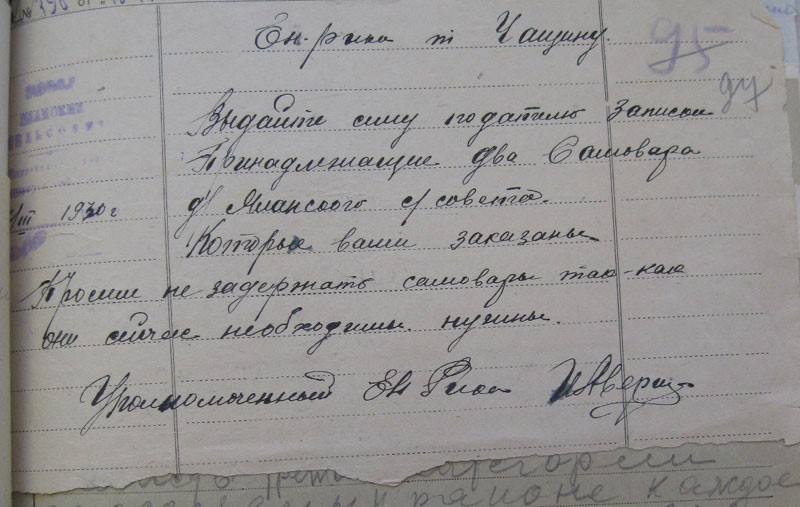 № 196 от
Ен-рика т Чащину.
95
97
Выдайте сему подателю записки
Принадлежащие два Самовара
д/ Яланского с/совета.
/III 1930 г
Которые вами заказаны
Просим не задержать самовары так-как
они сейчас необходимы нужны.
Уполномоченный Ен Рика
районе каждое